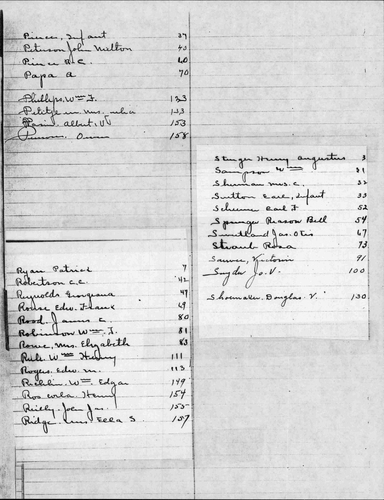 Pierce, Infant 37
Peterson John Milton 43
Pierce A.C. 60
Papa A 70
Phillips, Wm F. 133
Petitze in Mrs. 153
Albert, W 153
Owen 158
Ryan Patrick 7
Robertson C.C. 42
Reynolds Georgiana 47
Rouse Edw. Frank 69
Rood. James E. 80
Robinson Wm. F. 81
Rowe, Mrs. Elizabeth 83
Rule. Wm Henry 111
Rogers. Edw. M. 113
Richlin. Wm. Edgar 149
Roscorla Henry 154
Reilly. John Jas. 155
Ridge. Mrs Ella S. 157
Stenger Henry Augustus 3
Sampson Wm 31
Shuman Mrs. C. 32
Sutton Earl, Infant 33
Scheune Carl F 52
Springer Reason Bell 54
Smithland Jas. Otis 67
Straub Rosa 73
Victoria 91
Snyder Jo. V. 100
Shoemaker. Douglas. V. 130